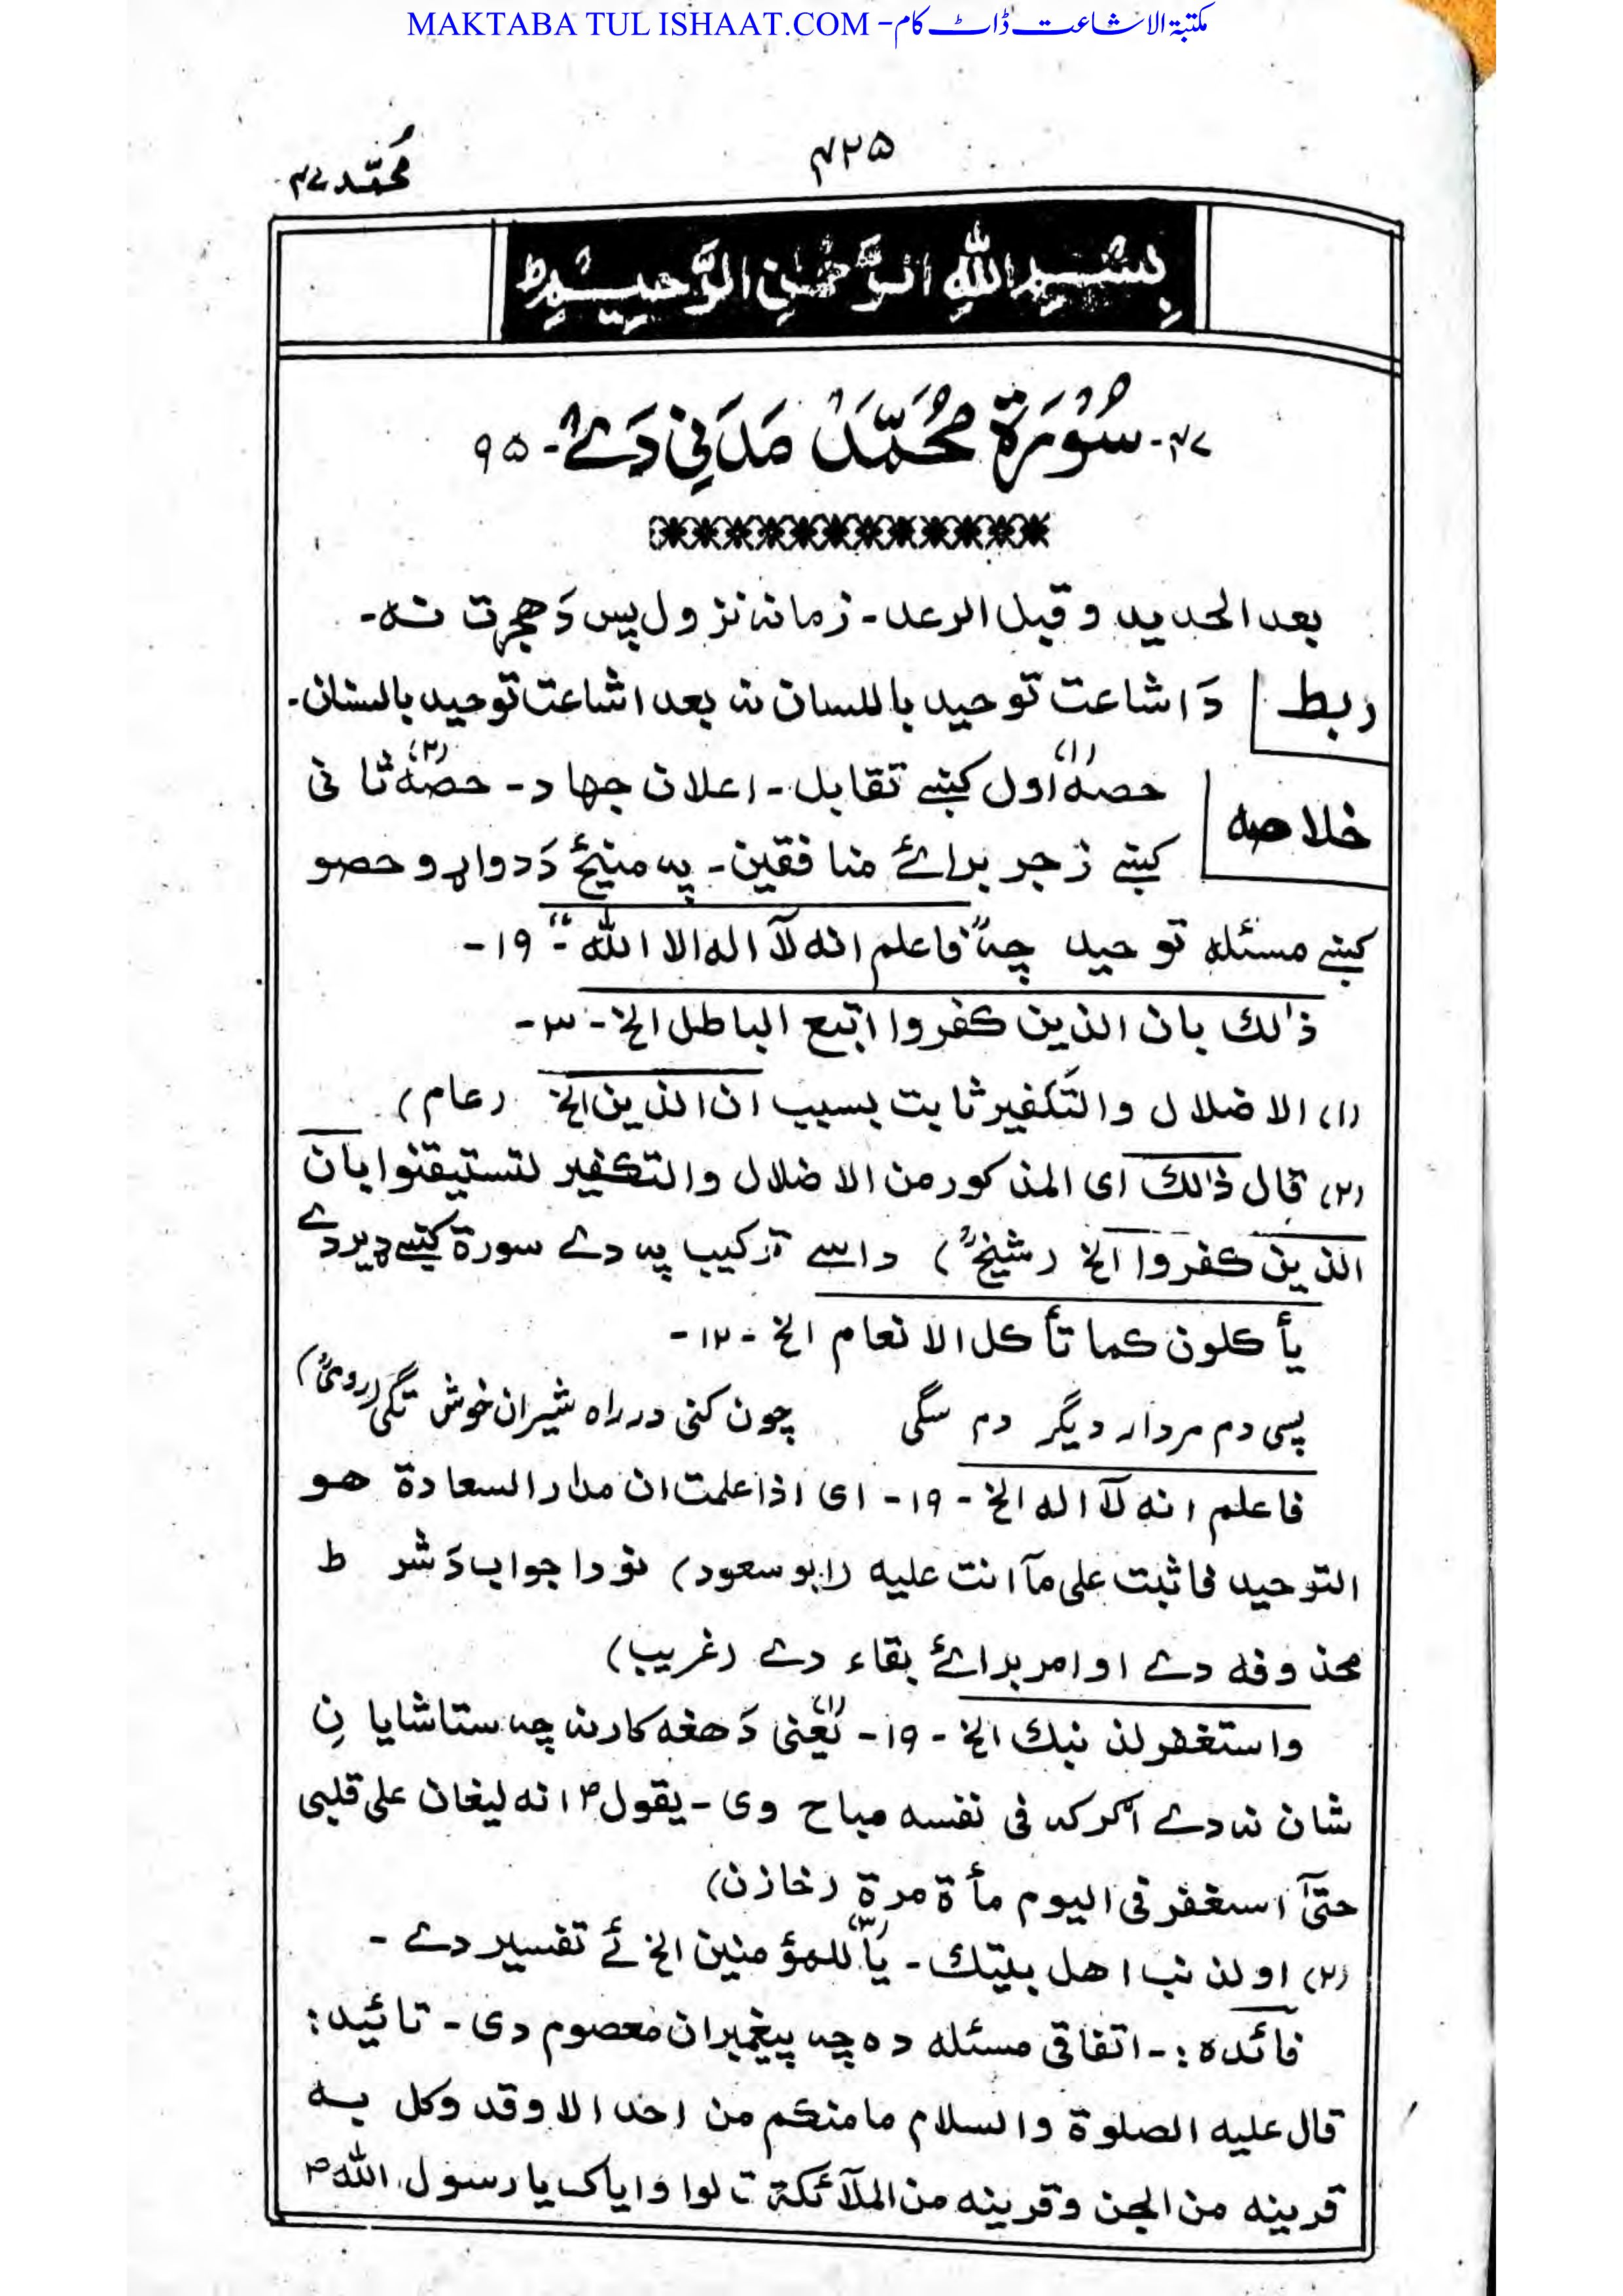 MAKTABA TUL ISHAAT.COM - مکتبۃ الاشاعت ڈاٹ کام
۴۲۵
محمّد ۴۷
بِسْمِ اللهِ الرَّحْمٰنِ الرَّحِيْمِ ط
۴۷- سُوْرَةُ مُحَمَّدْ مَدَنِي دَےْ- ۹۵
بعد الحدید و قبل الرعد - زمانہ نزول پس دَ هجرت نہ-
ربط
دَ اشاعت توحید باللسان نہ بعد اشاعت توحید بالسنان-
خلاصہ
حصہ (۱) اول کښے تقابل - اعلان جهاد - حصہ (۲) ثانی
کښے زجر برائے منافقین - پہ مینځ دَ دواړو حصو
کښے مسئلہ توحید چہ "فاعلم انه لآ اله الا الله" - ۱۹-
ذٰلك بان الذین كفروا اتبع الباطل الخ - ۳-
(۱) الاضلال والتكفیر ثابت بسبب ان الذین الخ (عام)
(۲) قال ذٰلك ای المذكور من الاضلال والتكفیر لتستیقنوا بان
الذین كفروا الخ (شیخؒ) داسے ترکیب پہ دے سورۃ کښے ډیر دے
یأكلون كما تأكل الانعام الخ - ۱۲-
پسی دم مردار دیگر دم سگی چون کنی در راه شیران خوش تگی (رومیؒ)
فاعلم انه لآ اله الخ - ۱۹- ای اذا علمت ان مدار السعادة هو
التوحید فاثبت علی مآ انت علیه (ابو سعود) نو دا جواب دَ شرط
محذوفه دے او امر برائے بقاء دے (غریب)
واستغفر لذنبك الخ - ۱۹- (۱) یعنی دَ هغه کار نہ چہ ستا شایانِ
شان نہ دے اگر کہ فی نفسه مباح وی - یقول ؐ انه لیغان علی قلبی
حتیٰ استغفر فی الیوم مأة مرة (خازن)
(۲) او لذنب اهل بیتك - (۳) یا للمؤمنین الخ ئے تفسیر دے -
فائدہ :- اتفاقی مسئله ده چہ پیغمبران معصوم دی - تائید:
قال علیه الصلوة والسلام ما منكم من احد الا وقد وكل به
قرینه من الجن وقرینه من الملآئكة قالوا وایاك یا رسول الله ؐ